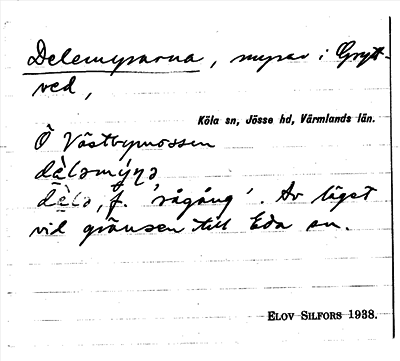 Delemyrarna, myrar i Grytt-
ved,
Köla sn, Jösse hd, Värmlands län.
Ö Västbymossen
dèləmýṇə
dèlə, f. 'rågång'. Av läget
vil gränsen till Eda sn.
ELOV SILFORS 1938.